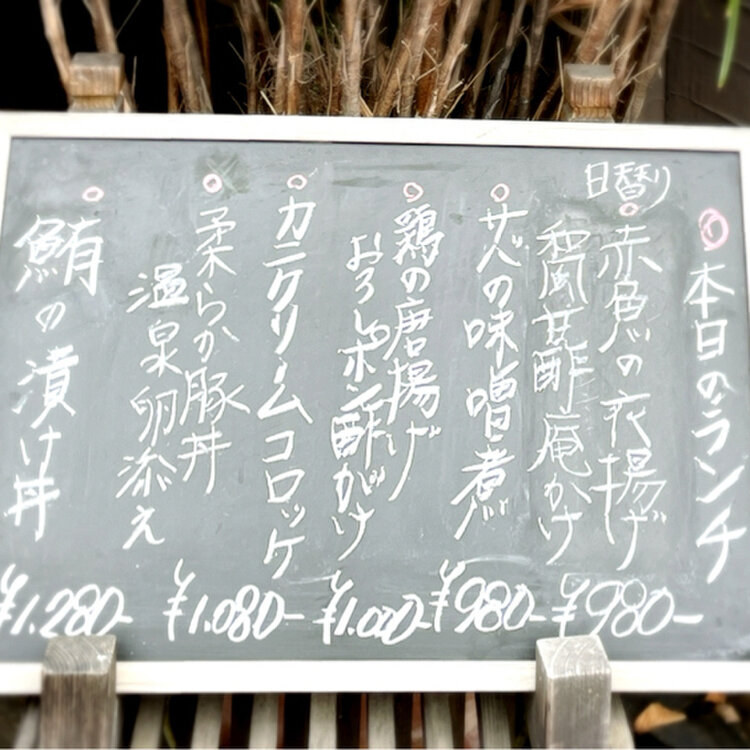 本日のランチ
日替り
赤魚の衣揚げ
和風甘酢庵かけ
¥980-
サバの味噌煮
¥980-
鶏の唐揚げ
おろしポン酢がけ
¥1.000-
カニクリームコロッケ
柔らか豚丼
温泉卵添え
¥1.080-
鮪の漬け丼
¥1.280-